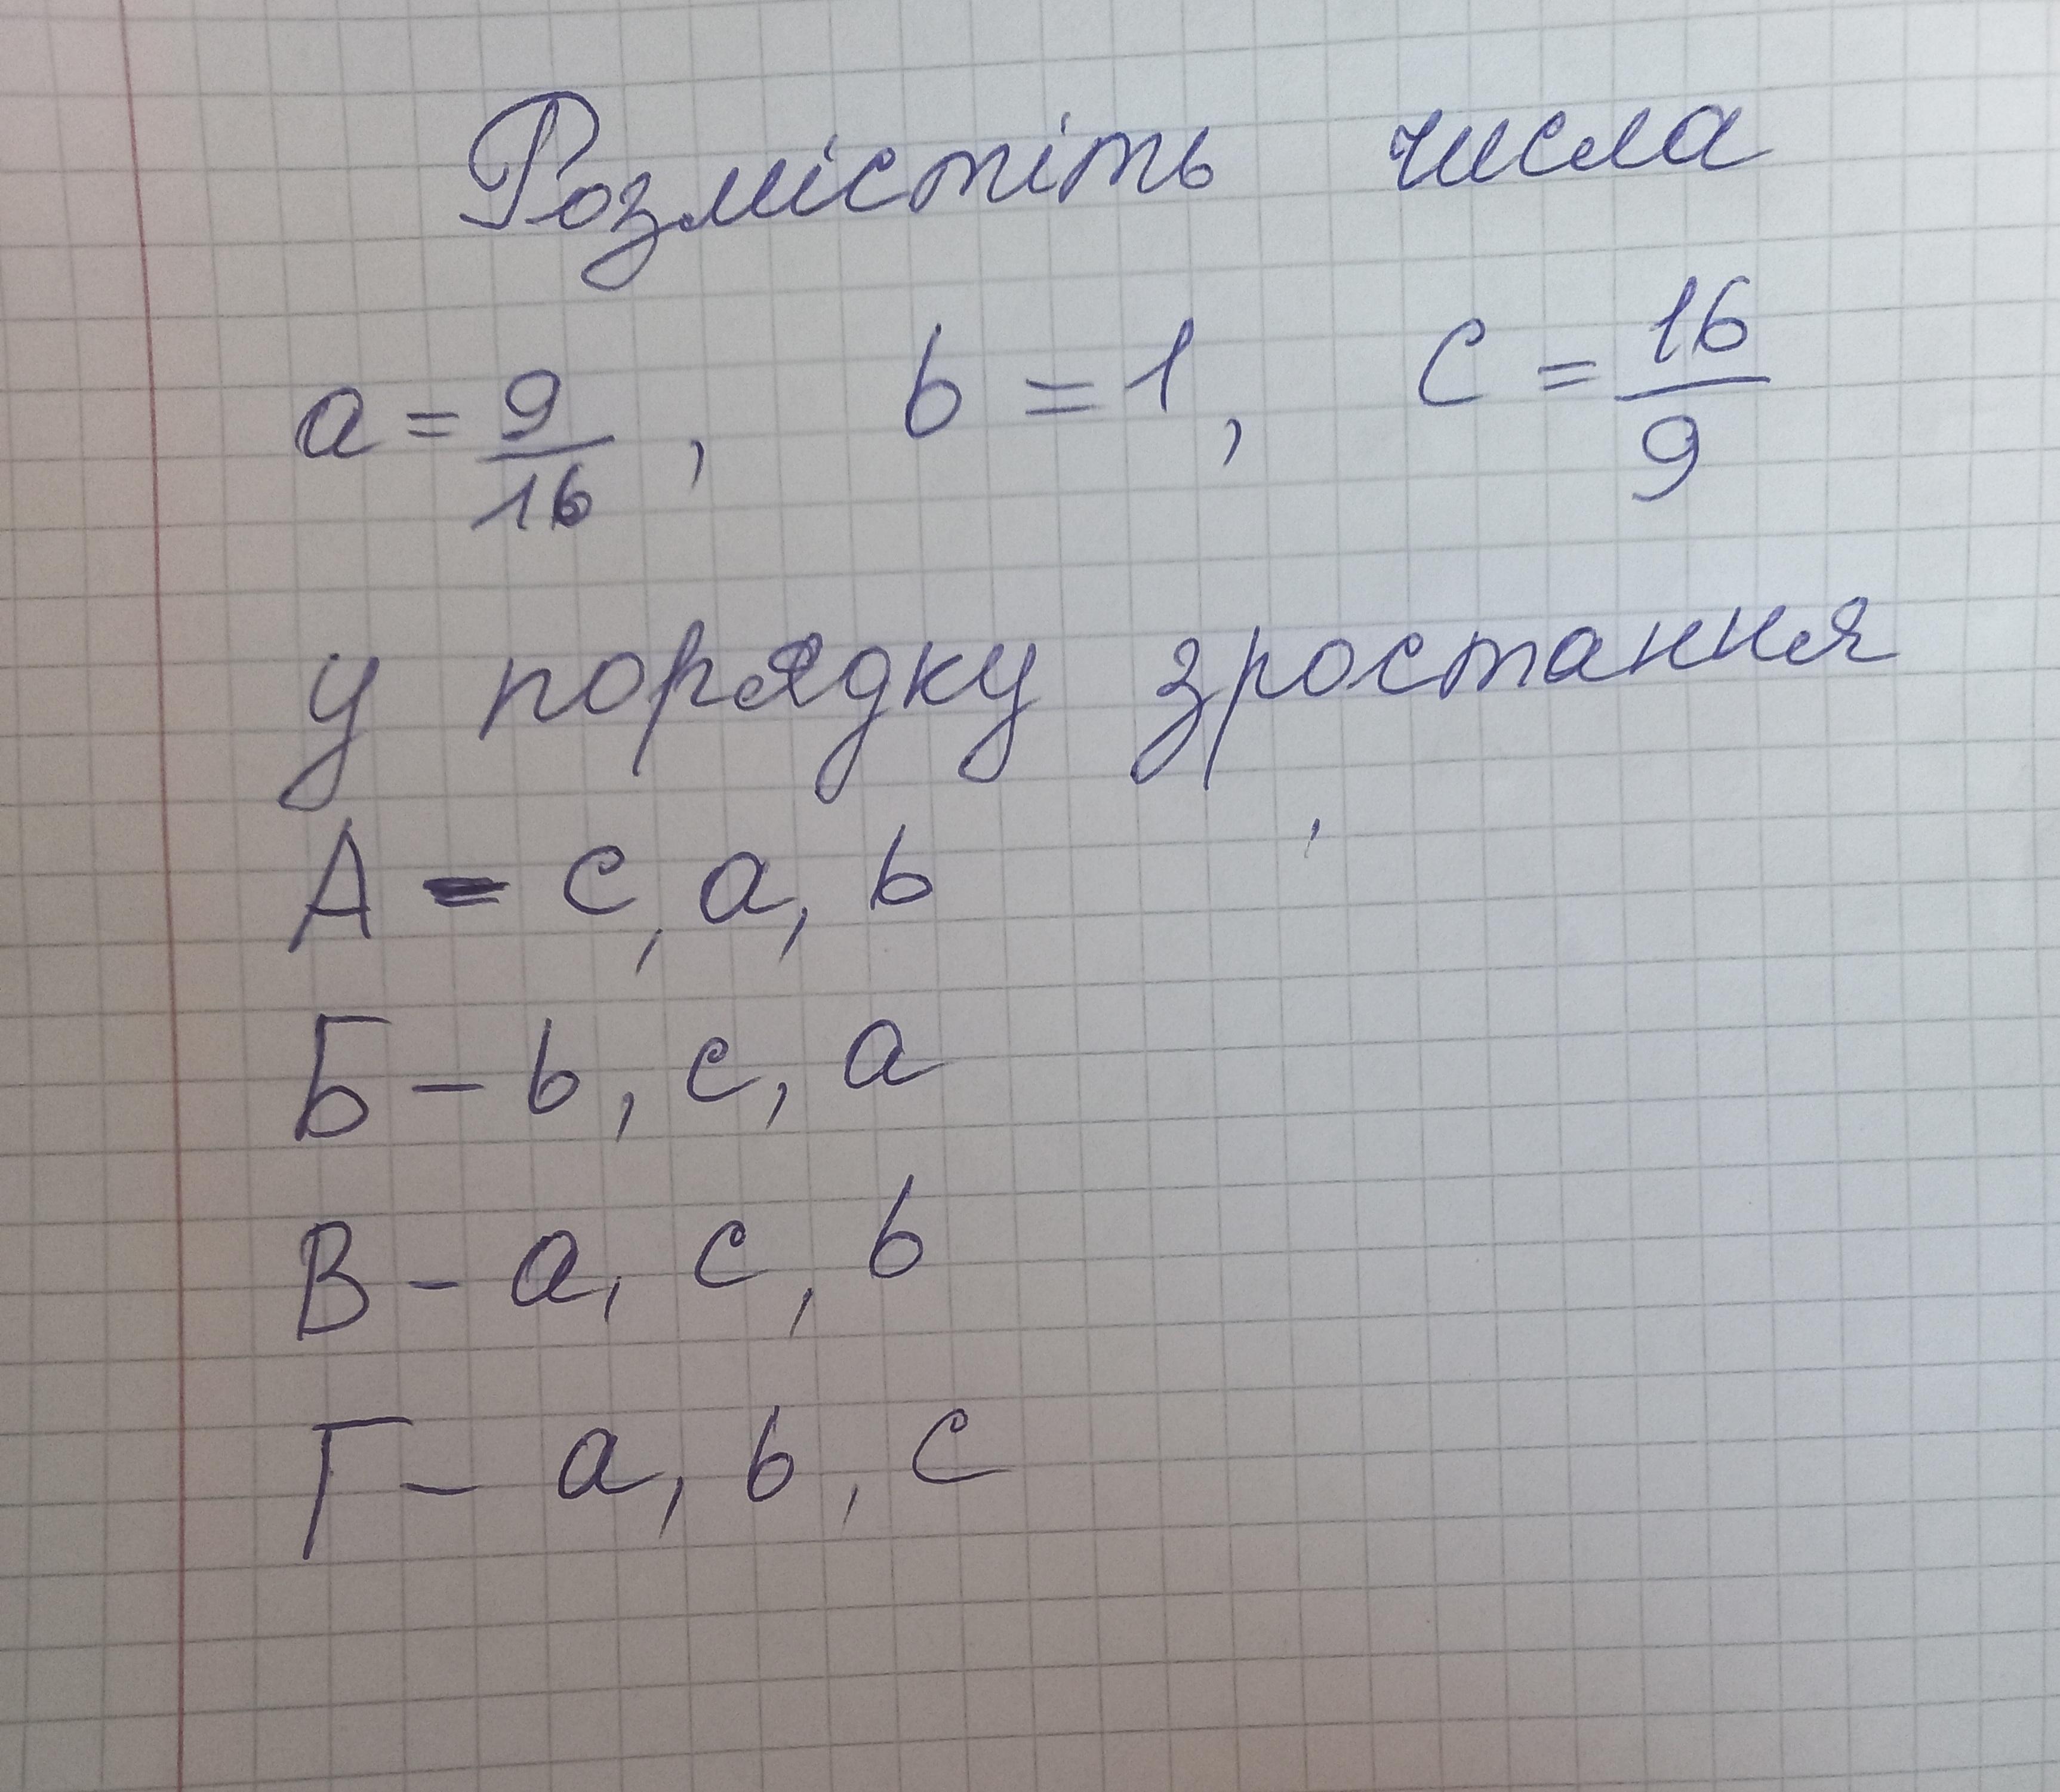 Розмістіть числа
a = 9/16, b = 1, c = 16/9
у порядку зростання
А - c, a, b
Б - b, c, a
В - a, c, b
Г - a, b, c